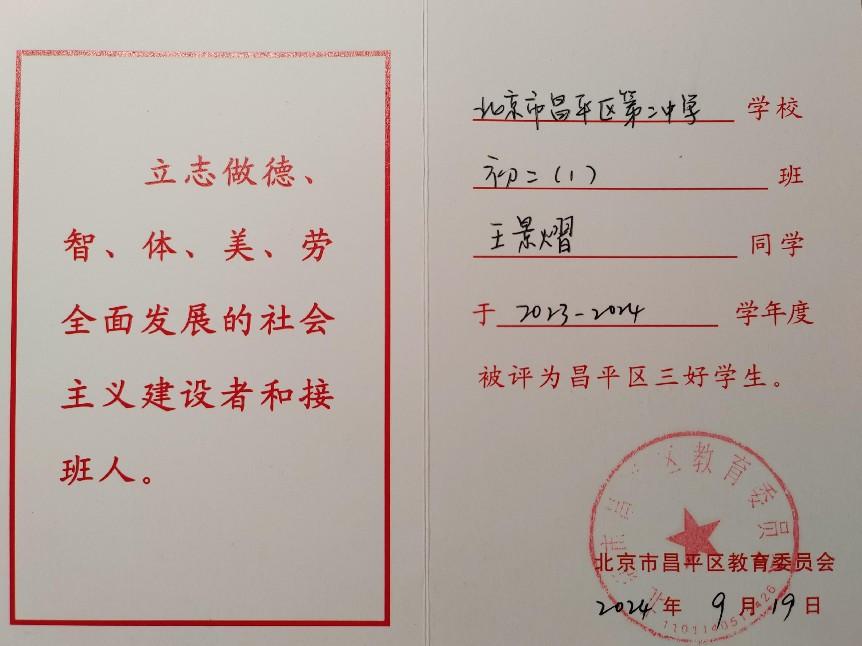 立志做德、
智、体、美、劳
全面发展的社会
主义建设者和接
班人。
北京市昌平区第二中学 学校
初二（1） 班
王景熠 同学
于 2023-2024 学年度
被评为昌平区三好学生。
北京市昌平区教育委员会
2024年 9月 19日